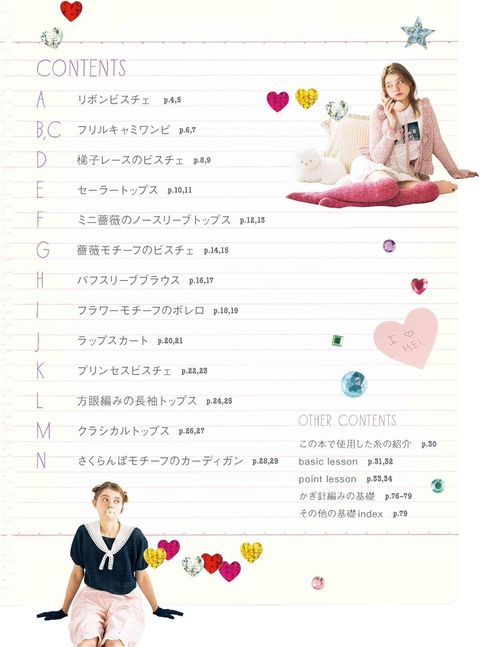 CONTENTS
A リボンビスチェ p.4,5
B,C フリルキャミワンピ p.6,7
D 梯子レースのビスチェ p.8,9
E セーラートップス p.10,11
F ミニ薔薇のノースリーブトップス p.12,13
G 薔薇モチーフのビスチェ p.14,15
H パフスリーブブラウス p.16,17
I フラワーモチーフのボレロ p.18,19
J ラップスカート p.20,21
K プリンセスビスチェ p.22,23
L 方眼編みの長袖トップス p.24,25
M クラシカルトップス p.26,27
N さくらんぼモチーフのカーディガン p.28,29
I ♡
ME!
OTHER CONTENTS
この本で使用した糸の紹介 p.30
basic lesson p.31,32
point lesson p.33,34
かぎ針編みの基礎 p.76-79
その他の基礎index p.79